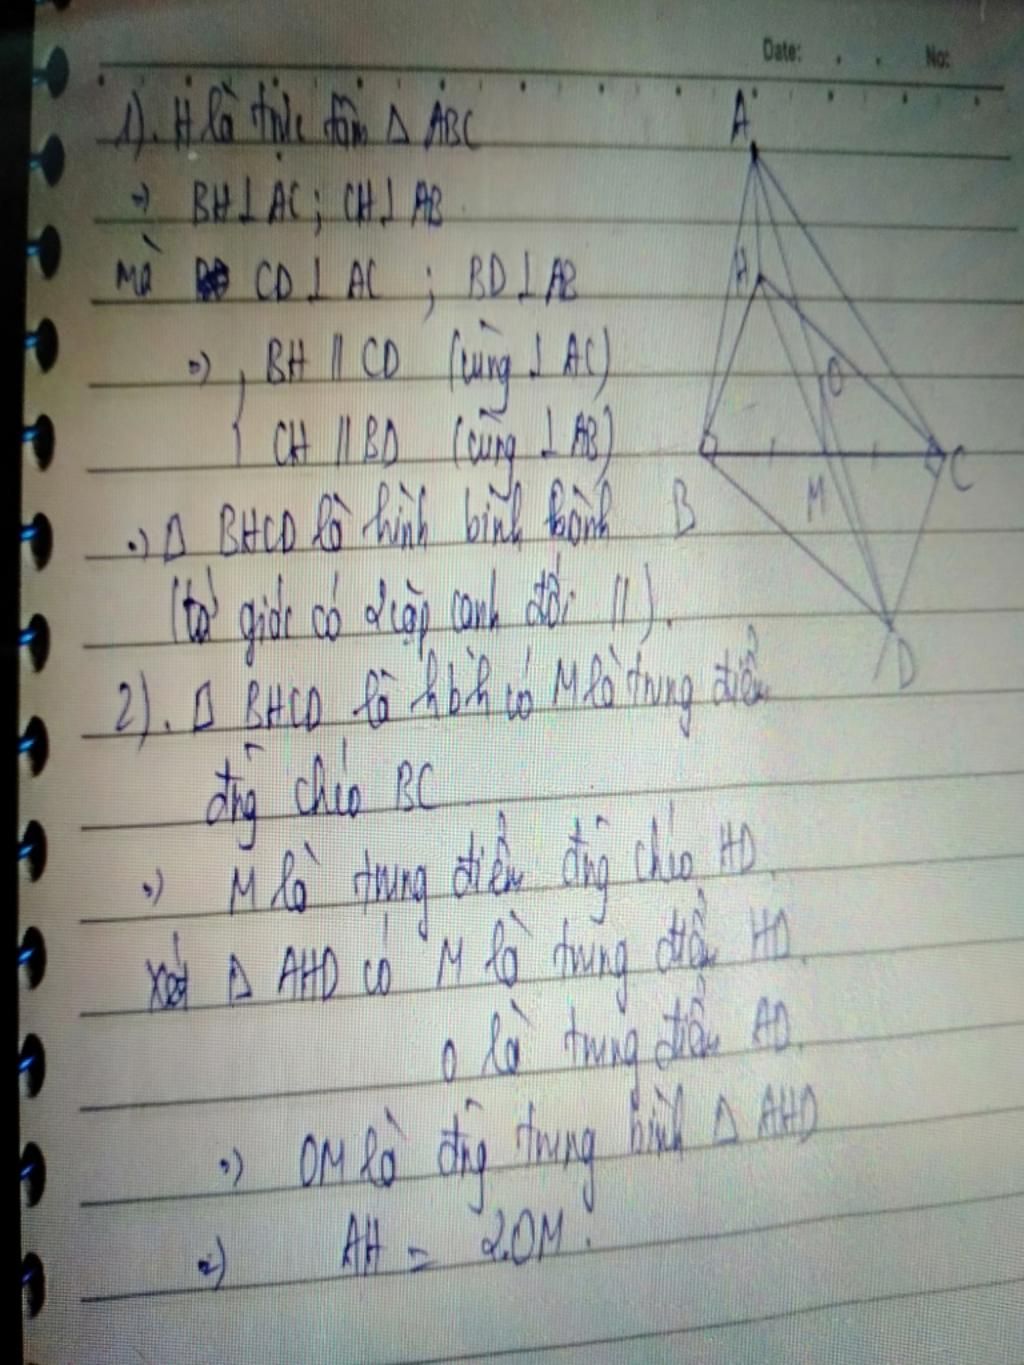 Date: . . No:
1). H là trực tâm Δ ABC
=> BH ⊥ AC ; CH ⊥ AB
mà CD ⊥ AC ; BD ⊥ AB
=> { BH // CD (cùng ⊥ AC)
CH // BD (cùng ⊥ AB)
=> Δ BHCD là hình bình hành
(tứ giác có 2 cặp cạnh đối //).
2). Δ BHCD là hbh có M là trung điểm
đg chéo BC
=> M là trung điểm đg chéo HD.
Xét Δ AHD có M là trung điểm HD.
O là trung điểm AD.
=> OM là đg trung bình Δ AHD
=> AH = 2OM.
A
H
O
B
M
C
D